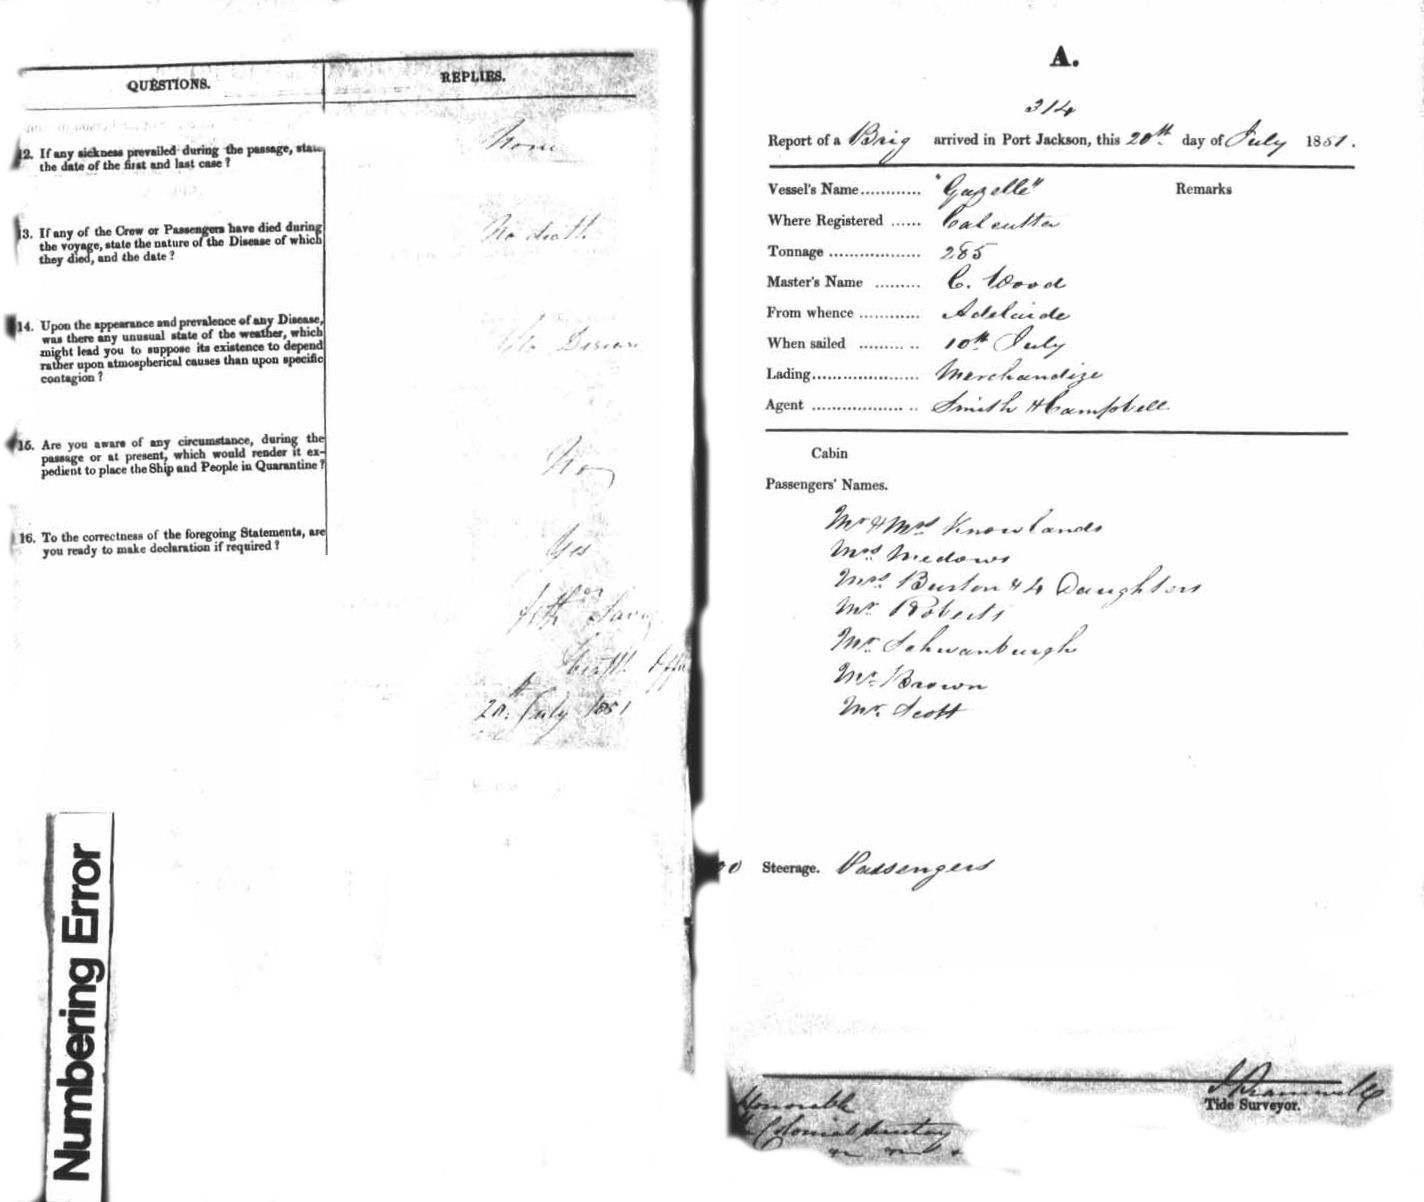 QUESTIONS.
REPLIES.
12. If any sickness prevailed during the passage, state
the date of the first and last case ?
None
13. If any of the Crew or Passengers have died during
the voyage, state the nature of the Disease of which
they died, and the date ?
No death
14. Upon the appearance and prevalence of any Disease,
was there any unusual state of the weather, which
might lead you to suppose its existence to depend
rather upon atmospherical causes than upon specific
contagion ?
No Disease
15. Are you aware of any circumstance, during the
passage or at present, which would render it ex-
pedient to place the Ship and People in Quarantine ?
No
16. To the correctness of the foregoing Statements, are
you ready to make declaration if required ?
Yes
Health
20th July 1851
Numbering Error
A.
314
Report of a Brig arrived in Port Jackson, this 20th day of July 1851.
Vessel's Name............ "Gazelle" Remarks
Where Registered ...... Calcutta
Tonnage .................. 285
Master's Name ......... C. Wood
From whence ............ Adelaide
When sailed ............ 10th July
Lading..................... Merchandize
Agent ..................... Smith & Campbell
Cabin
Passengers' Names.
Mr & Mrs Knowlands
Mrs Medows
Mrs Burton & 4 Daughters
Mr. Roberts
Mr. Schwanburgh
Mr. Brown
Mr. Scott
Steerage. Passengers
Tide Surveyor.
Honorable
Colonial Secretary